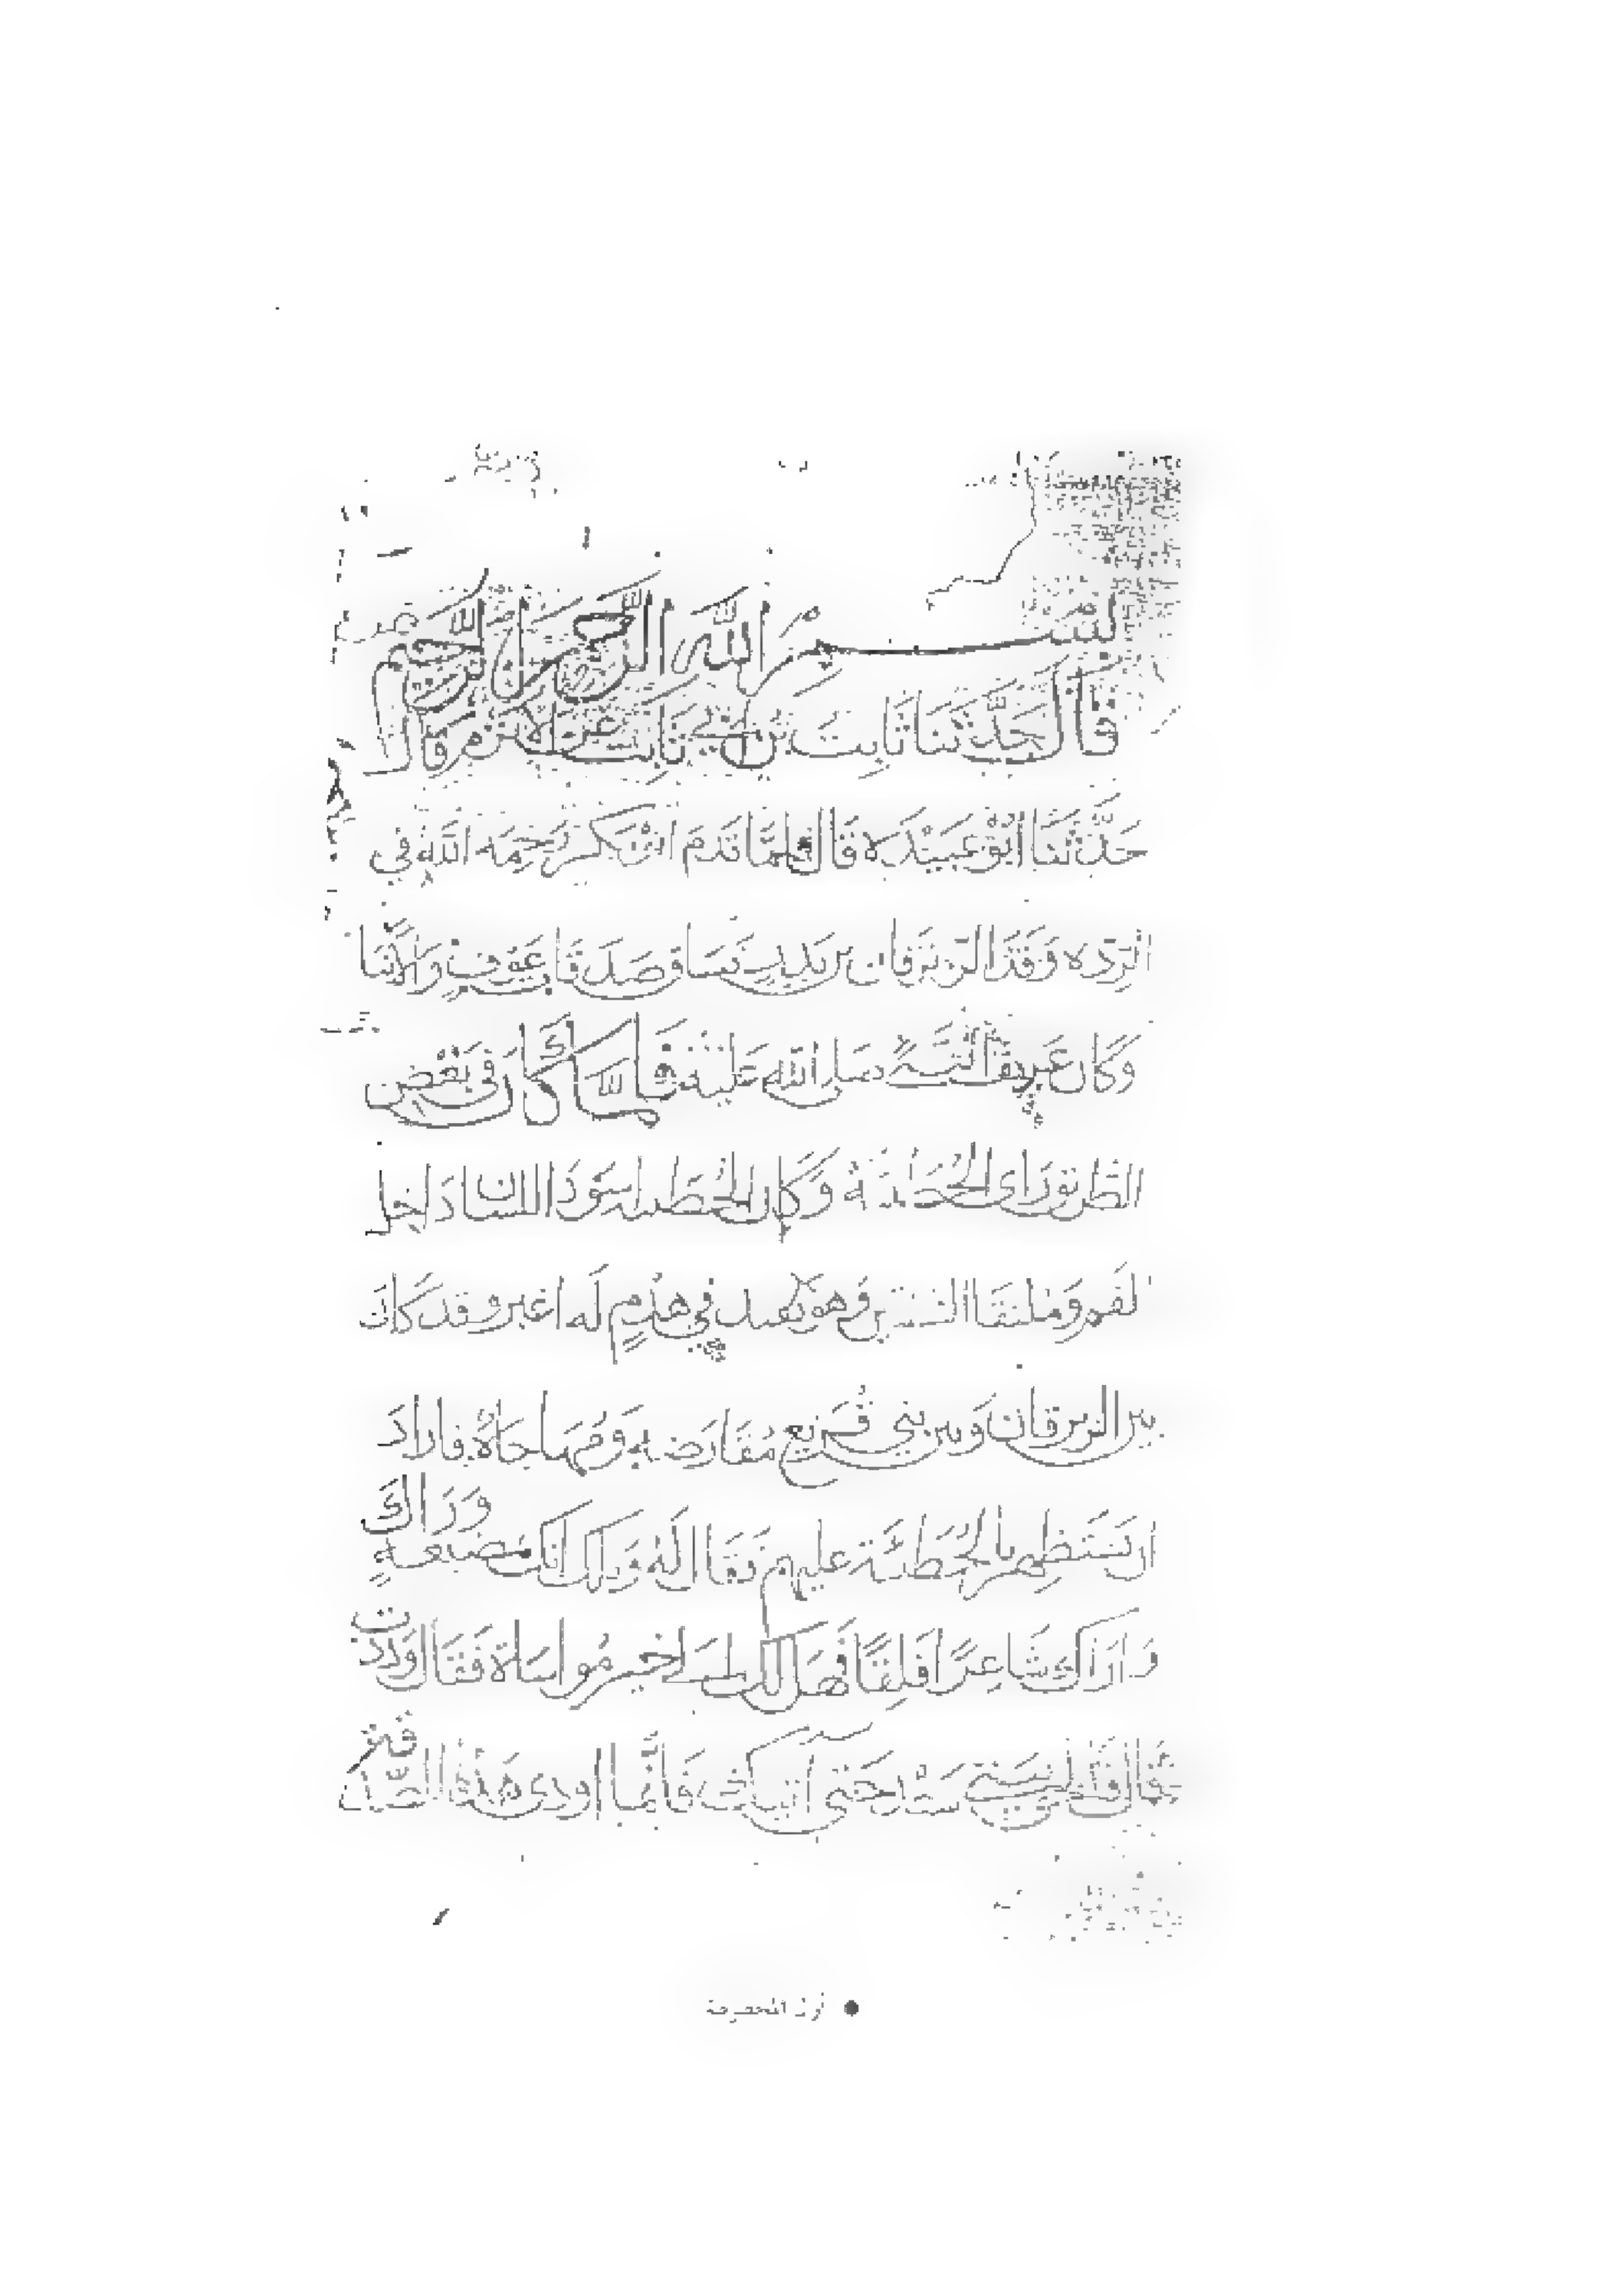 بسم الله الرحمن الرحيم
قال حدثنا ثابت بن أبي ثابت عن الاثرم قال
حدثنا أبو عبيدة قال لما قدم ابن بكر رحمه الله في
الردة وفد الزبرقان بن بدر صدقات عوف والأبناء
وكان عريف النبي صلى الله عليه فلما كان في بعض
الطريق رأى الحطيئة وكان الحطيئة اسود اللسان داخل
الفم وملتقا الشفتين وهو في هدم له اغبر وقد كانت
بين الزبرقان وبين بني قريع مقارضة ومهاجاة فاراد
ان يستظهر بالحطيئة عليهم فقال له ويلك انك بمضيعة وراك
واراك شاعرا فلقا فهل لك الى خير مواساة فقال وددت
قال فقد حتى آتيك فانما اودي هذه الصدقة
● أول المخطوطة